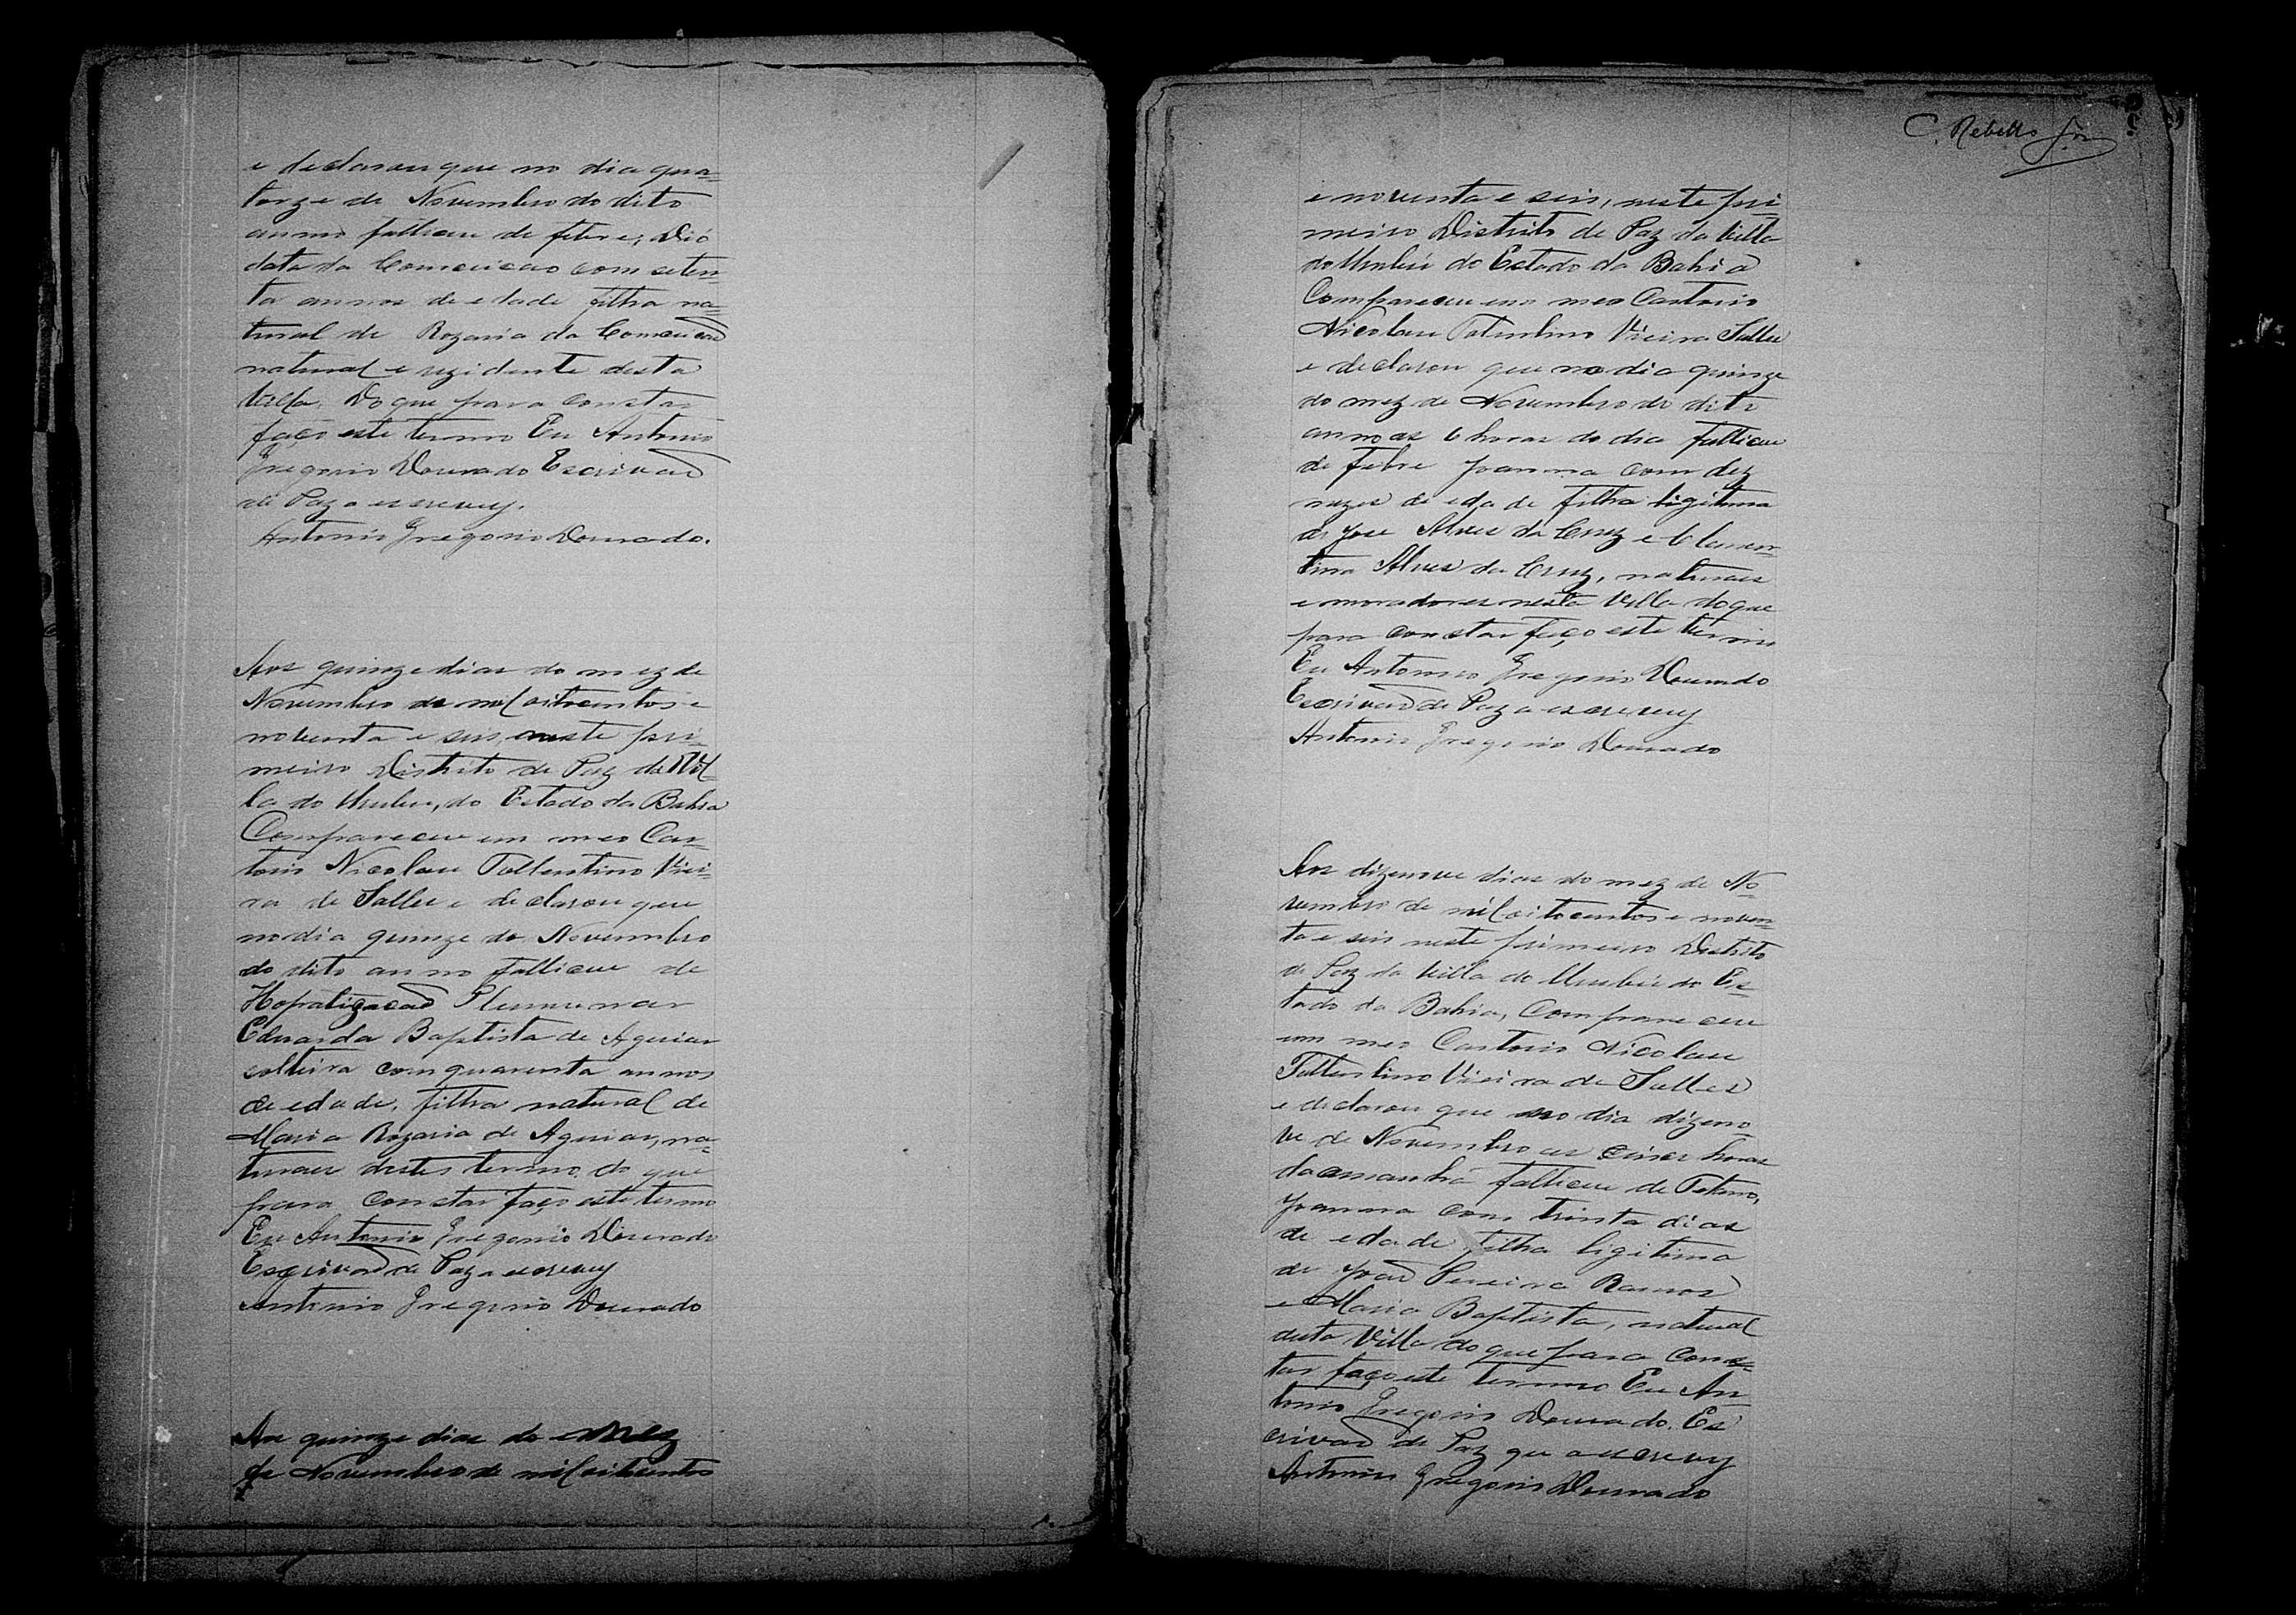 e declarou que no dia qua=
torze de Novembro do dito
anno falliceu de febre, Dió
data da Conceicao com seten
ta annos de edade filha na=
tural de Rozaria da Conceicão
natural e rezidente desta
Villa. Do que para constar
faço este termo Eu Antonio
Gregorio Dourado Escrivão
de Paz a escrevy.
Antonio Gregorio Dourado.
Aos quinze dias do mez de
Novembro de mil oitocentos e
noventa e seis, neste pri=
meiro Distrito de Paz da Vil=
la do Urubu, do Estado da Bahia
Compareceu em meo Car=
torio Nicolau Tollentino Viei=
ra de Salles e declarou que
no dia quinze de Novembro
do dito anno falliceu de
Eduarda Baptista de Aguiar
solteira com quarenta annos
de edade, filha natural de
Maria Rozaria de Aguiar, na=
turaes destes termo. do que
para constar faço este termo
Eu Antonio Gregorio Dourado
Escrivão de Paz a escrevy
Antonio Gregorio Dourado
Aos quinze dias do mez
de Novembro de mil oitocentos
C. Rebello
e noventa e seis, neste pri=
meiro Distrito de Paz da Villa
do Urubú do Estado da Bahia
Compareceu em meo Cartorio
Nicolau Tolentino Vieira Salles
e declarou que no dia quinze
do mez de Novembro do dito
anno as 6 horas do dia falliceu
de febre Joanna com dez
mezes de edade filha ligitima
de Jose Alves da Cruz e
tina Alves da Cruz, naturaes
e moradores nesta Villa do que
para constar faço este termo
Eu Antonio Gregorio Dourado
Escrivão de Paz a escrevy
Antonio Gregorio Dourado
Aos dizenove dias do mez de No=
vembro de mil oitocentos e noven=
ta e seis neste primeiro Distrito
de Paz da Villa do Urubú do Es=
tado da Bahia, Compareceu
em meo Cartorio Nicolau
Tollentino Vieira de Salles
e declarou que no dia dizeno=
ve de Novembro as cinco horas
da manhã falliceu de Tetano,
Joanna com trinta dias
de edade filha ligitima
de João Pereira Ramos
e Maria Baptista, natural
desta Villa do que para cons=
tar faço este termo Eu An
tonio Gregorio Dourado. Es
crivão de Paz que a escrevy
Antonio Gregorio Dourado